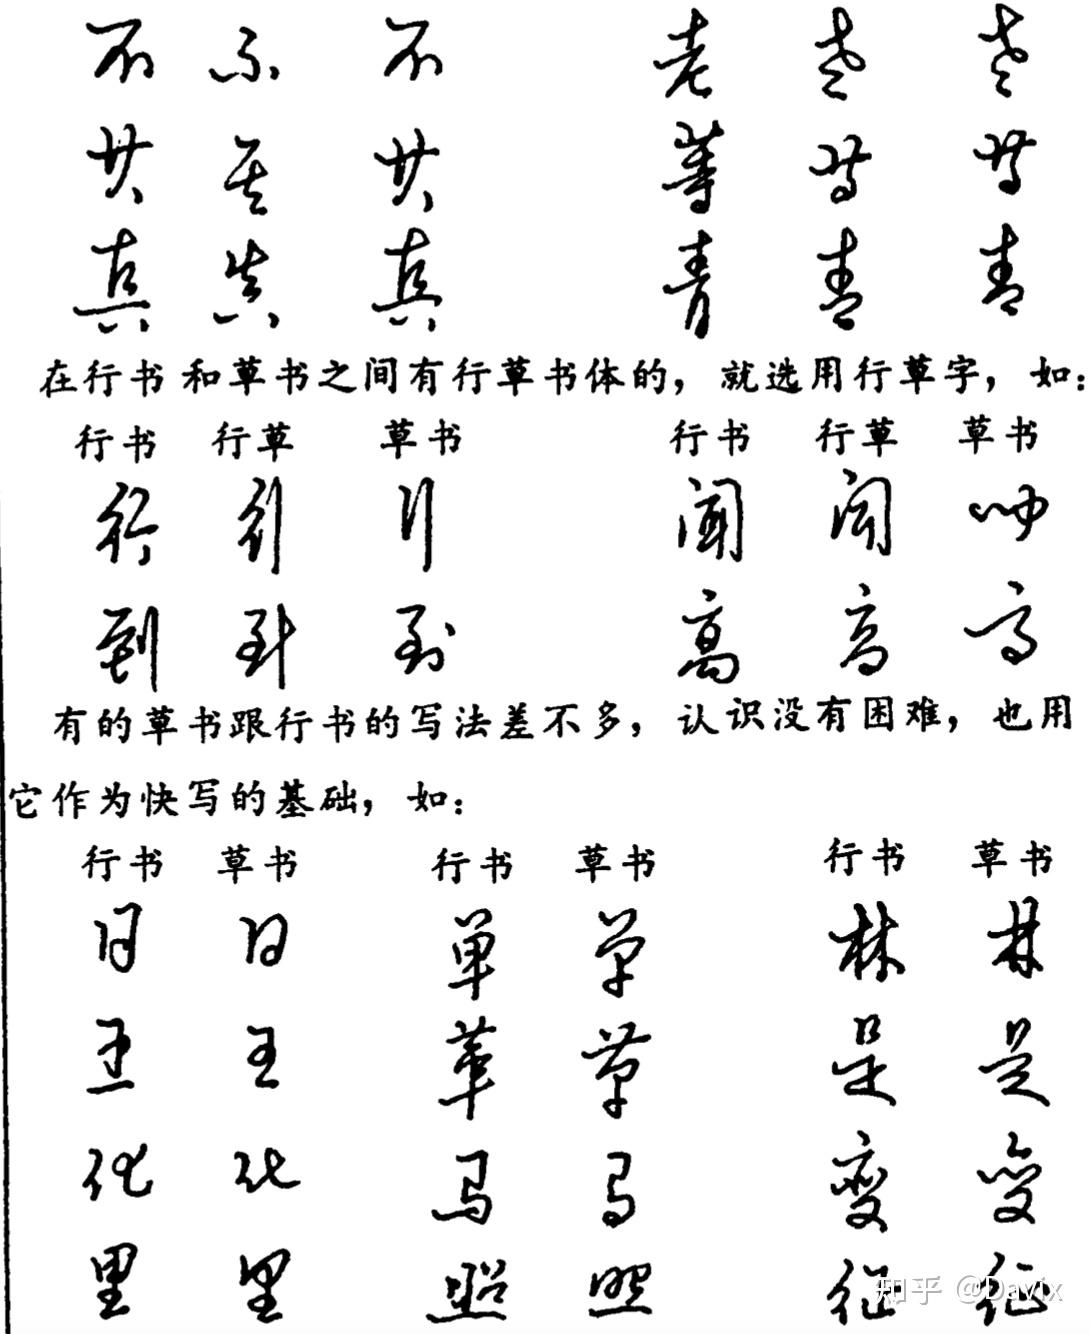 不 不 不 老 老 老
其 其 其 等 等 等
真 真 真 青 青 青
在行书和草书之间有行草书体的，就选用行草字，如：
行书 行草 草书 行书 行草 草书
行 行 行 闻 闻 闻
到 到 到 高 高 高
有的草书跟行书的写法差不多，认识没有困难，也用
它作为快写的基础，如：
行书 草书 行书 草书 行书 草书
日 日 单 单 林 林
王 王 草 草 足 足
化 化 马 马 变 变
里 里 照 照 征 征
知乎 @Davix